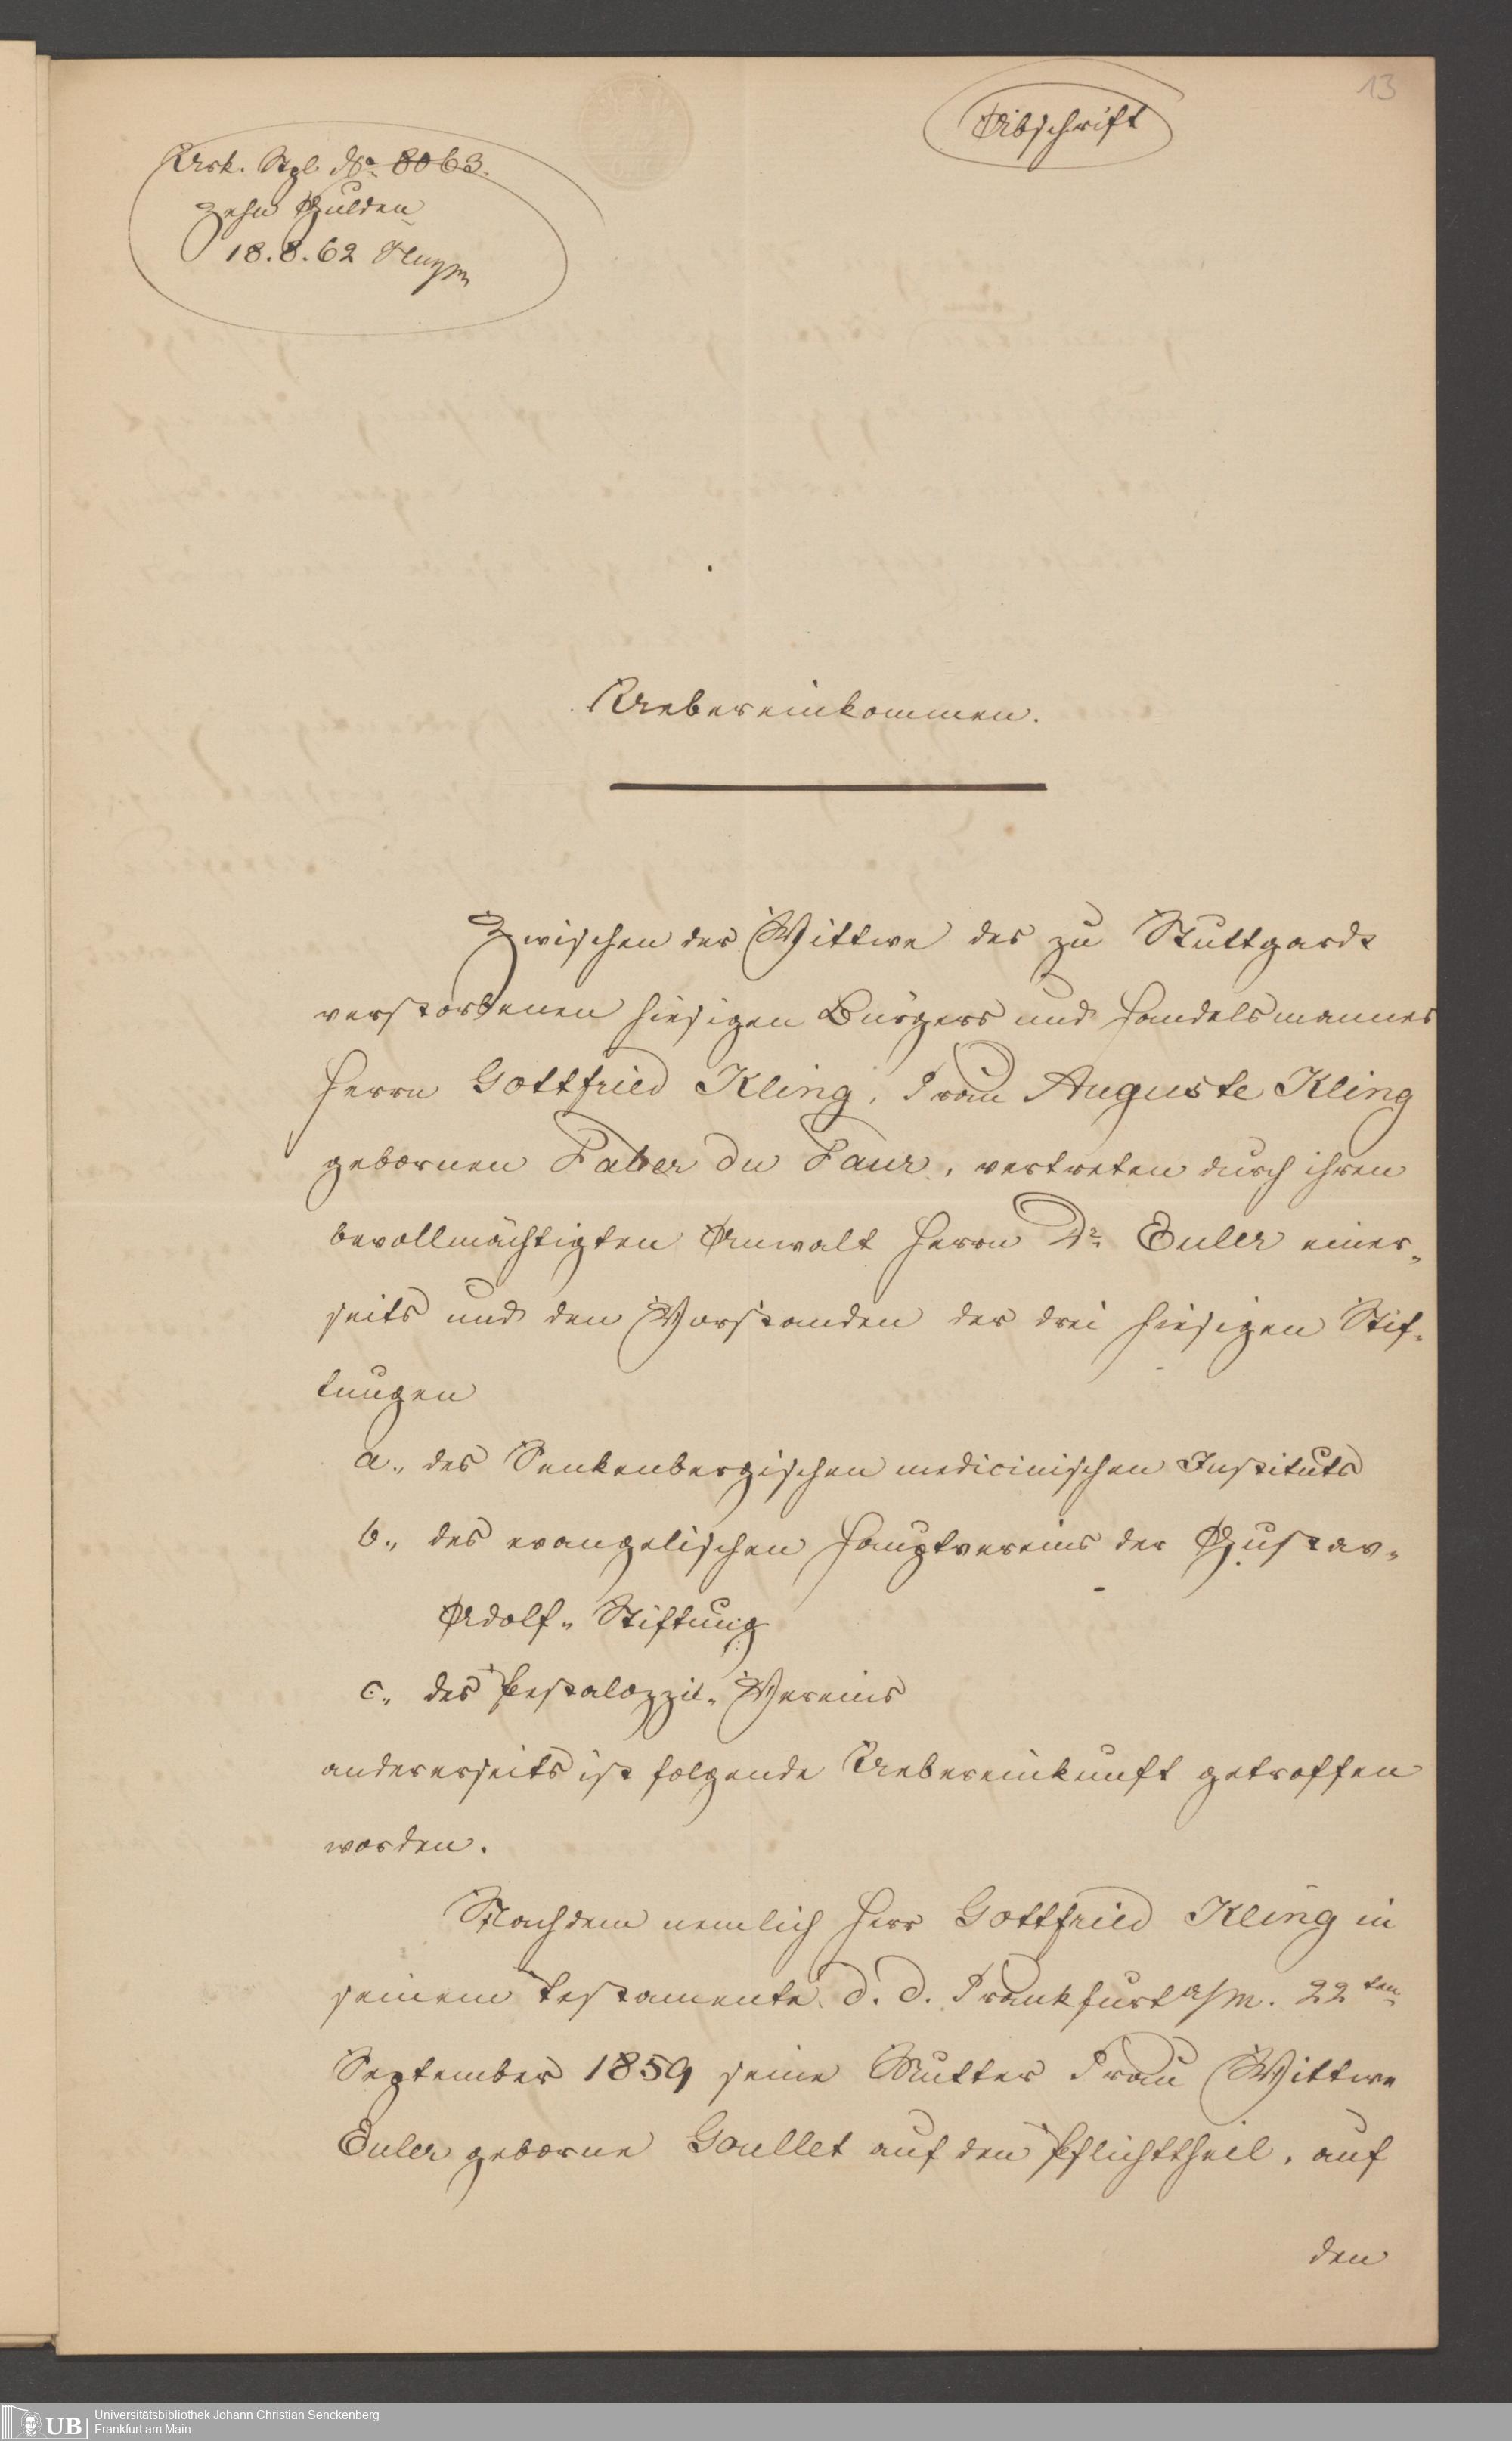 13
Abschrift
Urk. Stpl. No. 8063.
Zehn Gulden
18.8.62
Uebereinkommen.
Zwischen der Wittwe des zu Stuttgardt
verstorbenen hiesigen Bürgers und Handelsmannes
Herrn Gottfried Kling, Frau Auguste Kling
gebornen Faber du Faur, vertreten durch ihren
bevollmächtigten Anwalt Herrn Dr. Euler einer-
seits und den Vorstanden der drei hiesigen Stif-
tungen
a., des Senkenbergischen medicinischen Instituts
b., des evangelischen Hauptvereins der Gustav-
Adolf-Stiftung
c., des Pestalozzi-Vereins
andererseits ist folgende Uebereinkunft getroffen
worden.
Nachdem nemlich Herr Gottfried Kling in
seinem Testamente d. d. Frankfurt a/m. 22ten
September 1859 seine Mutter Frau Wittwe
Euler geborne Goullet auf den Pflichttheil, auf
den
UB
Universitätsbibliothek Johann Christian Senckenberg
Frankfurt am Main